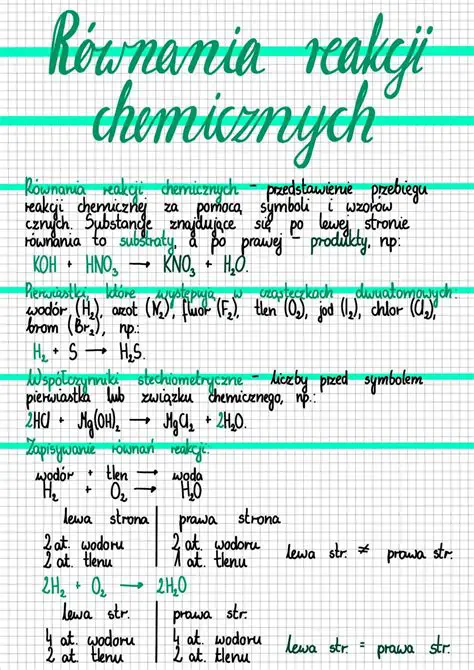 Równania reakcji
chemicznych
Równania reakcji chemicznych - przedstawienie przebiegu
reakcji chemicznej za pomocą symboli i wzorów
cznych. Substancje znajdujące się po lewej stronie
równania to substraty, a po prawej - produkty, np:
KOH + HNO₃ → KNO₃ + H₂O.
Pierwiastki, które występują w cząsteczkach dwuatomowych:
wodór (H₂), azot (N₂), fluor (F₂), tlen (O₂), jod (I₂), chlor (Cl₂),
brom (Br₂), np.:
H₂ + S → H₂S.
Współczynniki stechiometryczne - liczby przed symbolem
pierwiastka lub związku chemicznego, np.:
2HCl + Mg(OH)₂ → MgCl₂ + 2H₂O.
Zapisywanie równań reakcji:
wodór + tlen → woda
H₂ + O₂ → H₂O
lewa strona prawa strona
2 at. wodoru 2 at. wodoru
2 at. tlenu 1 at. tlenu lewa str. ≠ prawa str.
2H₂ + O₂ → 2H₂O
lewa str. prawa str.
4 at. wodoru 4 at. wodoru
2 at. tlenu 2 at. tlenu lewa str. = prawa str.